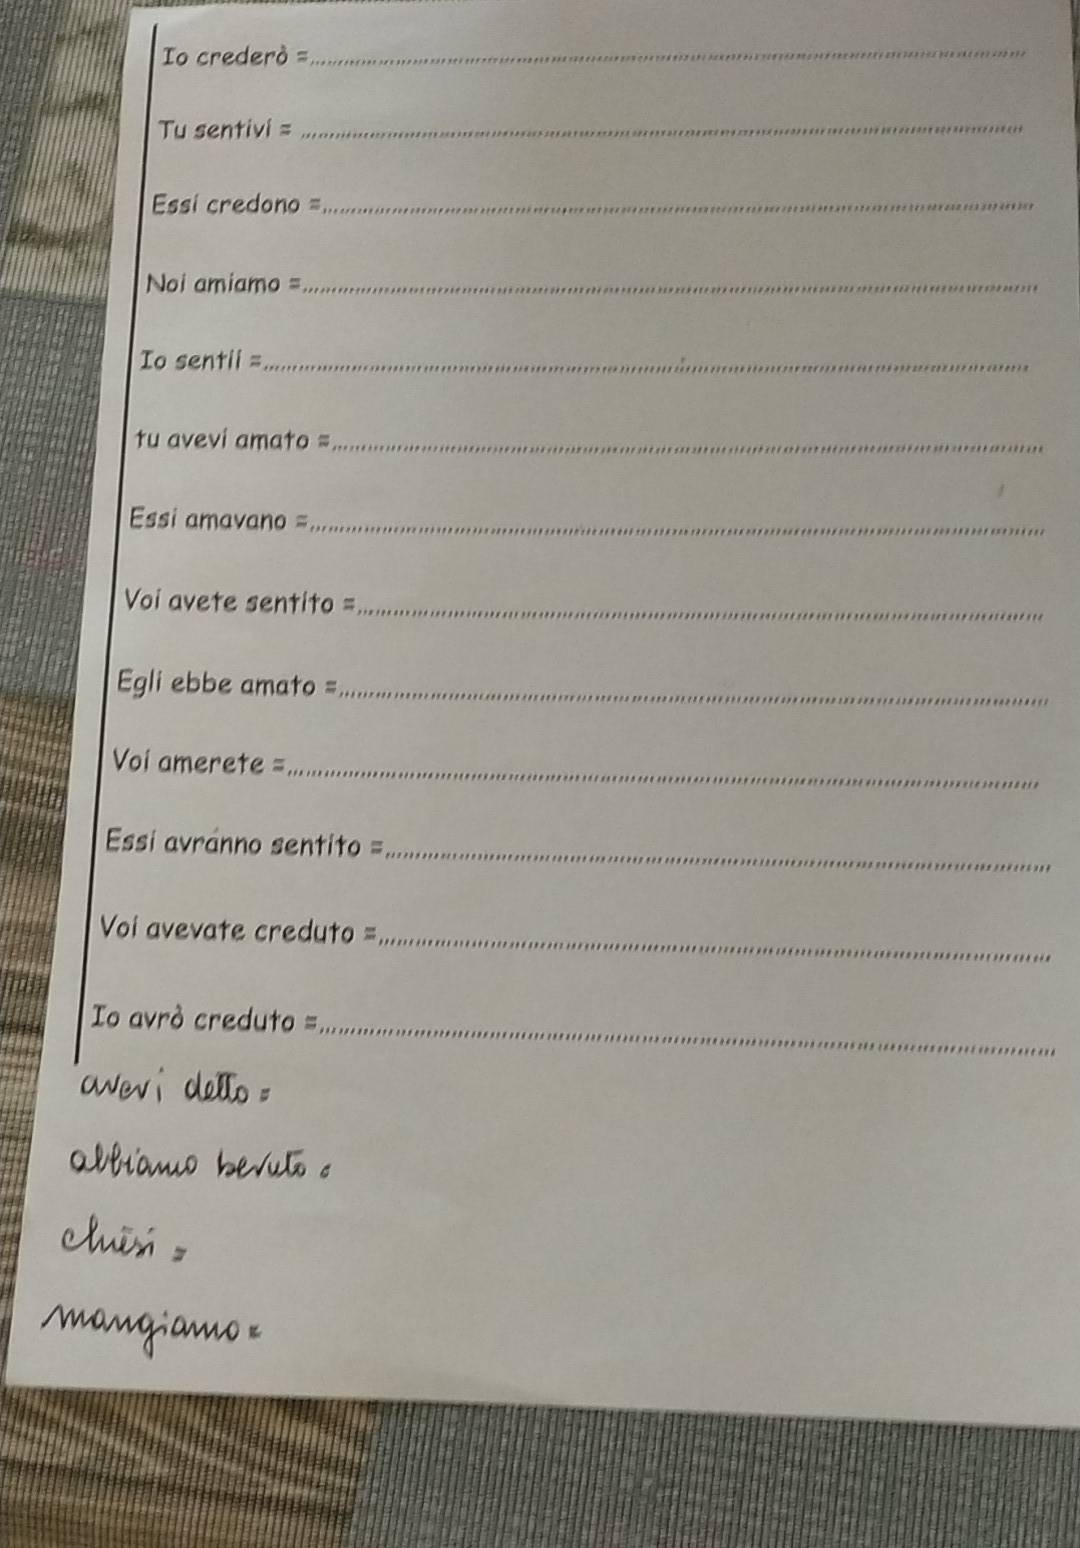 Io crederò =
Tu sentivi =
Essi credono =
Noi amiamo =
Io sentii =
tu avevi amato =
Essi amavano =
Voi avete sentito =
Egli ebbe amato =
Voi amerete =
Essi avranno sentito =
Voi avevate creduto =
Io avrò creduto =
avevi detto =
abbiamo bevuto =
chiesi =
mangiamo =